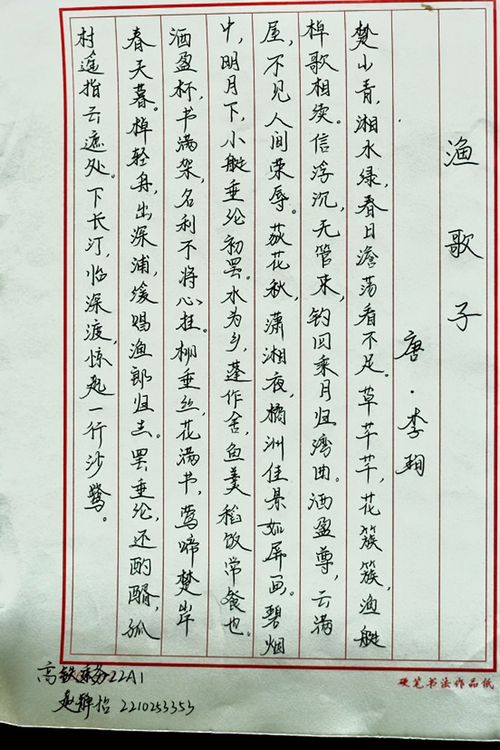 渔歌子
唐·李珣
楚山青,湘水绿,春日澹荡看不足。草芊芊,花簇簇,渔艇
棹歌相续。信浮沉,无管束,钓回乘月归湾曲。酒盈尊,云满
屋,不见人间荣辱。荻花秋,潇湘夜,橘洲佳景如屏画。碧烟
中,明月下,小艇垂纶初罢。水为乡,蓬作舍,鱼羹稻饭常餐也。
酒盈杯,书满架,名利不将心挂。柳垂丝,花满书,莺啼楚岸
春天暮。棹轻舟,出深浦,缓唱渔郎归去。罢垂纶,还酌醑,孤
村遥指云遮处。下长汀,临深渡,惊起一行沙鹭。
硬笔书法作品纸
高铁乘务22A1
赵静怡 2210253353